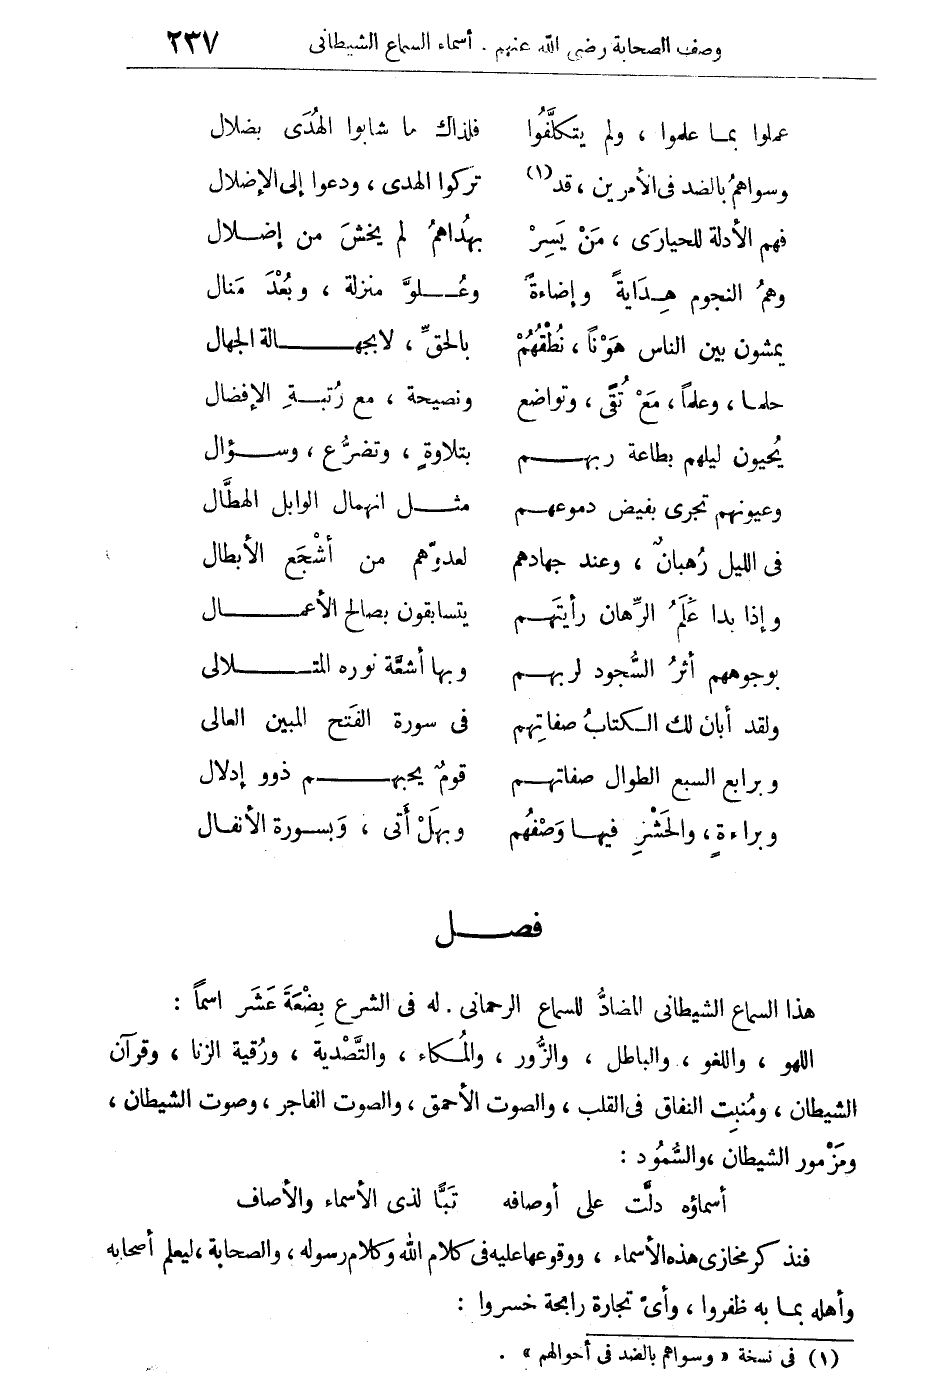 وصف الصحابة رضى الله عنهم . أسماء السماع الشيطانى ٢٣٧
عملوا بمـا علموا ، ولم يتكلَّفُوا فلذاك ما شابوا الهُدَى بضلال
وسواهمُ بالضد فى الأمرين ، قد (١) تركوا الهدى ، ودعوا إلى الإضلال
فهم الأدلة للحيارَى ، مَنْ يَسِرْ بهُداهمُ لم يخشَ من إضـلال
وهمُ النجوم هِـدَايةً وإضاءةً وعُـلوَّ منزلة ، وبُعْدَ مَنال
يمشون بين الناس هَوْنًا ، نُطْقُهُمْ بالحقِّ ، لا بجهـالة الجهال
حلما ، وعلماً ، مَعْ تُقًى ، وتواضع ونصيحة ، مع رُتبـةِ الإفضال
يُحيون ليلهم بطاعة ربهـم بتلاوةٍ ، وتضرُّع ، وسـؤال
وعيونهم تجرى بفيض دموعهـم مثـل انهمال الوابل الهطَّال
فى الليل رُهبانٌ ، وعند جهادهم لعدوّهم من أشْجَع الأبطال
وإذا بدا عَلَمُ الرِّهان رأيتَهـم يتسابقون بصالح الأعمـال
بوجوههم أثرُ السُّجود لربهـم وبها أشعَّة نوره المتـلالى
ولقد أبان لك الكتابُ صفاتِهم فى سورة الفَتح المبين العالى
وبرابع السبع الطوال صفاتهـم قومٌ يحبهـم ذوو إدلال
وبراءةٍ ، والحَشْرِ فيهـا وَصْفُهُم وبهَلْ أَتى ، وَبسورة الأنفال
فصـل
هذا السماع الشيطانى المضادُّ للسماع الرحمانى . له فى الشرع بِضْعَةَ عَشَر اسماً :
اللهو ، واللغو ، والباطل ، والزُّور ، والمُكاء ، والتَّصْدية ، ورُقية الزنا ، وقرآن
الشيطان ، ومُنبِت النفاق فى القلب ، والصوت الأحمق ، والصوت الفاجر ، وصوت الشيطان ،
ومَزْمور الشيطان ، والسُّمُود :
أسماؤه دلَّت على أوصافه تَبًّا لذى الأسماء والأصاف
فنذكر مخازى هذه الأسماء ، ووقوعها عليه فى كلام الله وكلام رسوله ، والصحابة ، ليعلم أصحابه
وأهله بمـا به ظفروا ، وأىَّ تجارة رابحة خسروا :
(١) فى نسخة « وسواهم بالضد فى أحوالهم » .